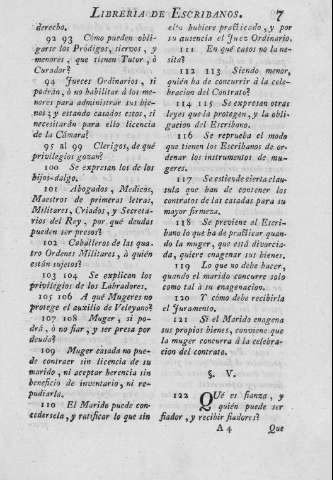 LIBRERIA DE ESCRIBANOS. 7
derecho.
92 93 Cómo pueden obli-
garse los Pródigos, siervos, y
menores, que tienen Tutor, ó
Curador?
94 Jueces Ordinarios, si
podrán, ó no habilitar á los me-
nores para administrar sus bie-
nes; y estando casados estos, si
necesitarán para ello licencia
de la Cámara?
95 al 99 Clerigos, de qué
privilegios gozan?
100 Se expresan los de los
hijos-dalgo.
101 Abogados, Medicos,
Maestros de primeras letras,
Militares, Criados, y Secreta-
rios del Rey, por qué deudas
pueden ser presos?
102 Caballeros de las qua-
tro Ordenes Militares, á quién
están sujetos?
103 104 Se explican los
privilegios de los Labradores.
105 106 A qué Mugeres no
protege el auxilio de Veleyano?
107 108 Muger, si po-
drá, ó no fiar, y ser presa por
deuda?
109 Muger casada no pue-
de contraer sin licencia de su
marido, ni aceptar herencia sin
beneficio de inventario, ni re-
pudiarla.
110 El Marido puede con-
cedersela, y ratificar lo que sin
ello hubiere practicado, y por
su ausencia el Juez Ordinario.
111 En qué casos no la ne-
sita?
112 113 Siendo menor,
quién ha de concurrir á la cele-
bracion del Contrato?
114 115 Se expresan otras
leyes que la protegen, y la obli-
gacion del Escribano.
116 Se reprueba el modo
que tienen los Escribanos de or-
denar los instrumentos de mu-
geres.
117 Se estiende cierta clau-
sula que han de contener los
contratos de las casadas para su
mayor firmeza.
118 Se previene al Escri-
bano lo que ha de practicar quan-
do la muger, que está divorcia-
da, quiere enagenar sus bienes.
119 Lo que no debe hacer,
quando el marido concurre solo
como tal á su enagenacion.
120 Y cómo debe recibirla
el Juramento.
121 Si el Marido enagena
sus propios bienes, conviene que
la muger concurra á la celebra-
cion del contrato.
§. V.
122 QUé es fianza, y
quién puede ser
fiador, y recibir fiadores?
A 4 Que